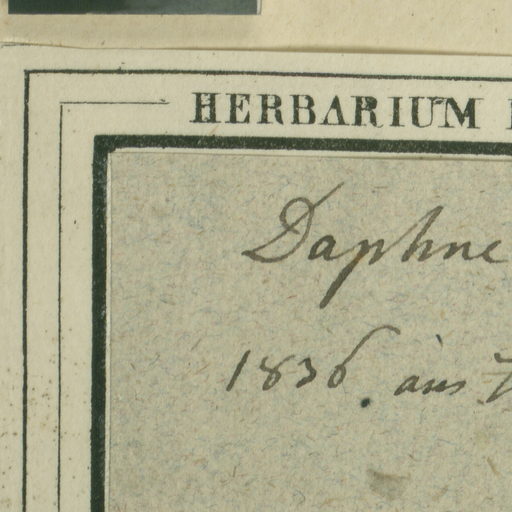 HERBARIUM
Daphne
1836. aus